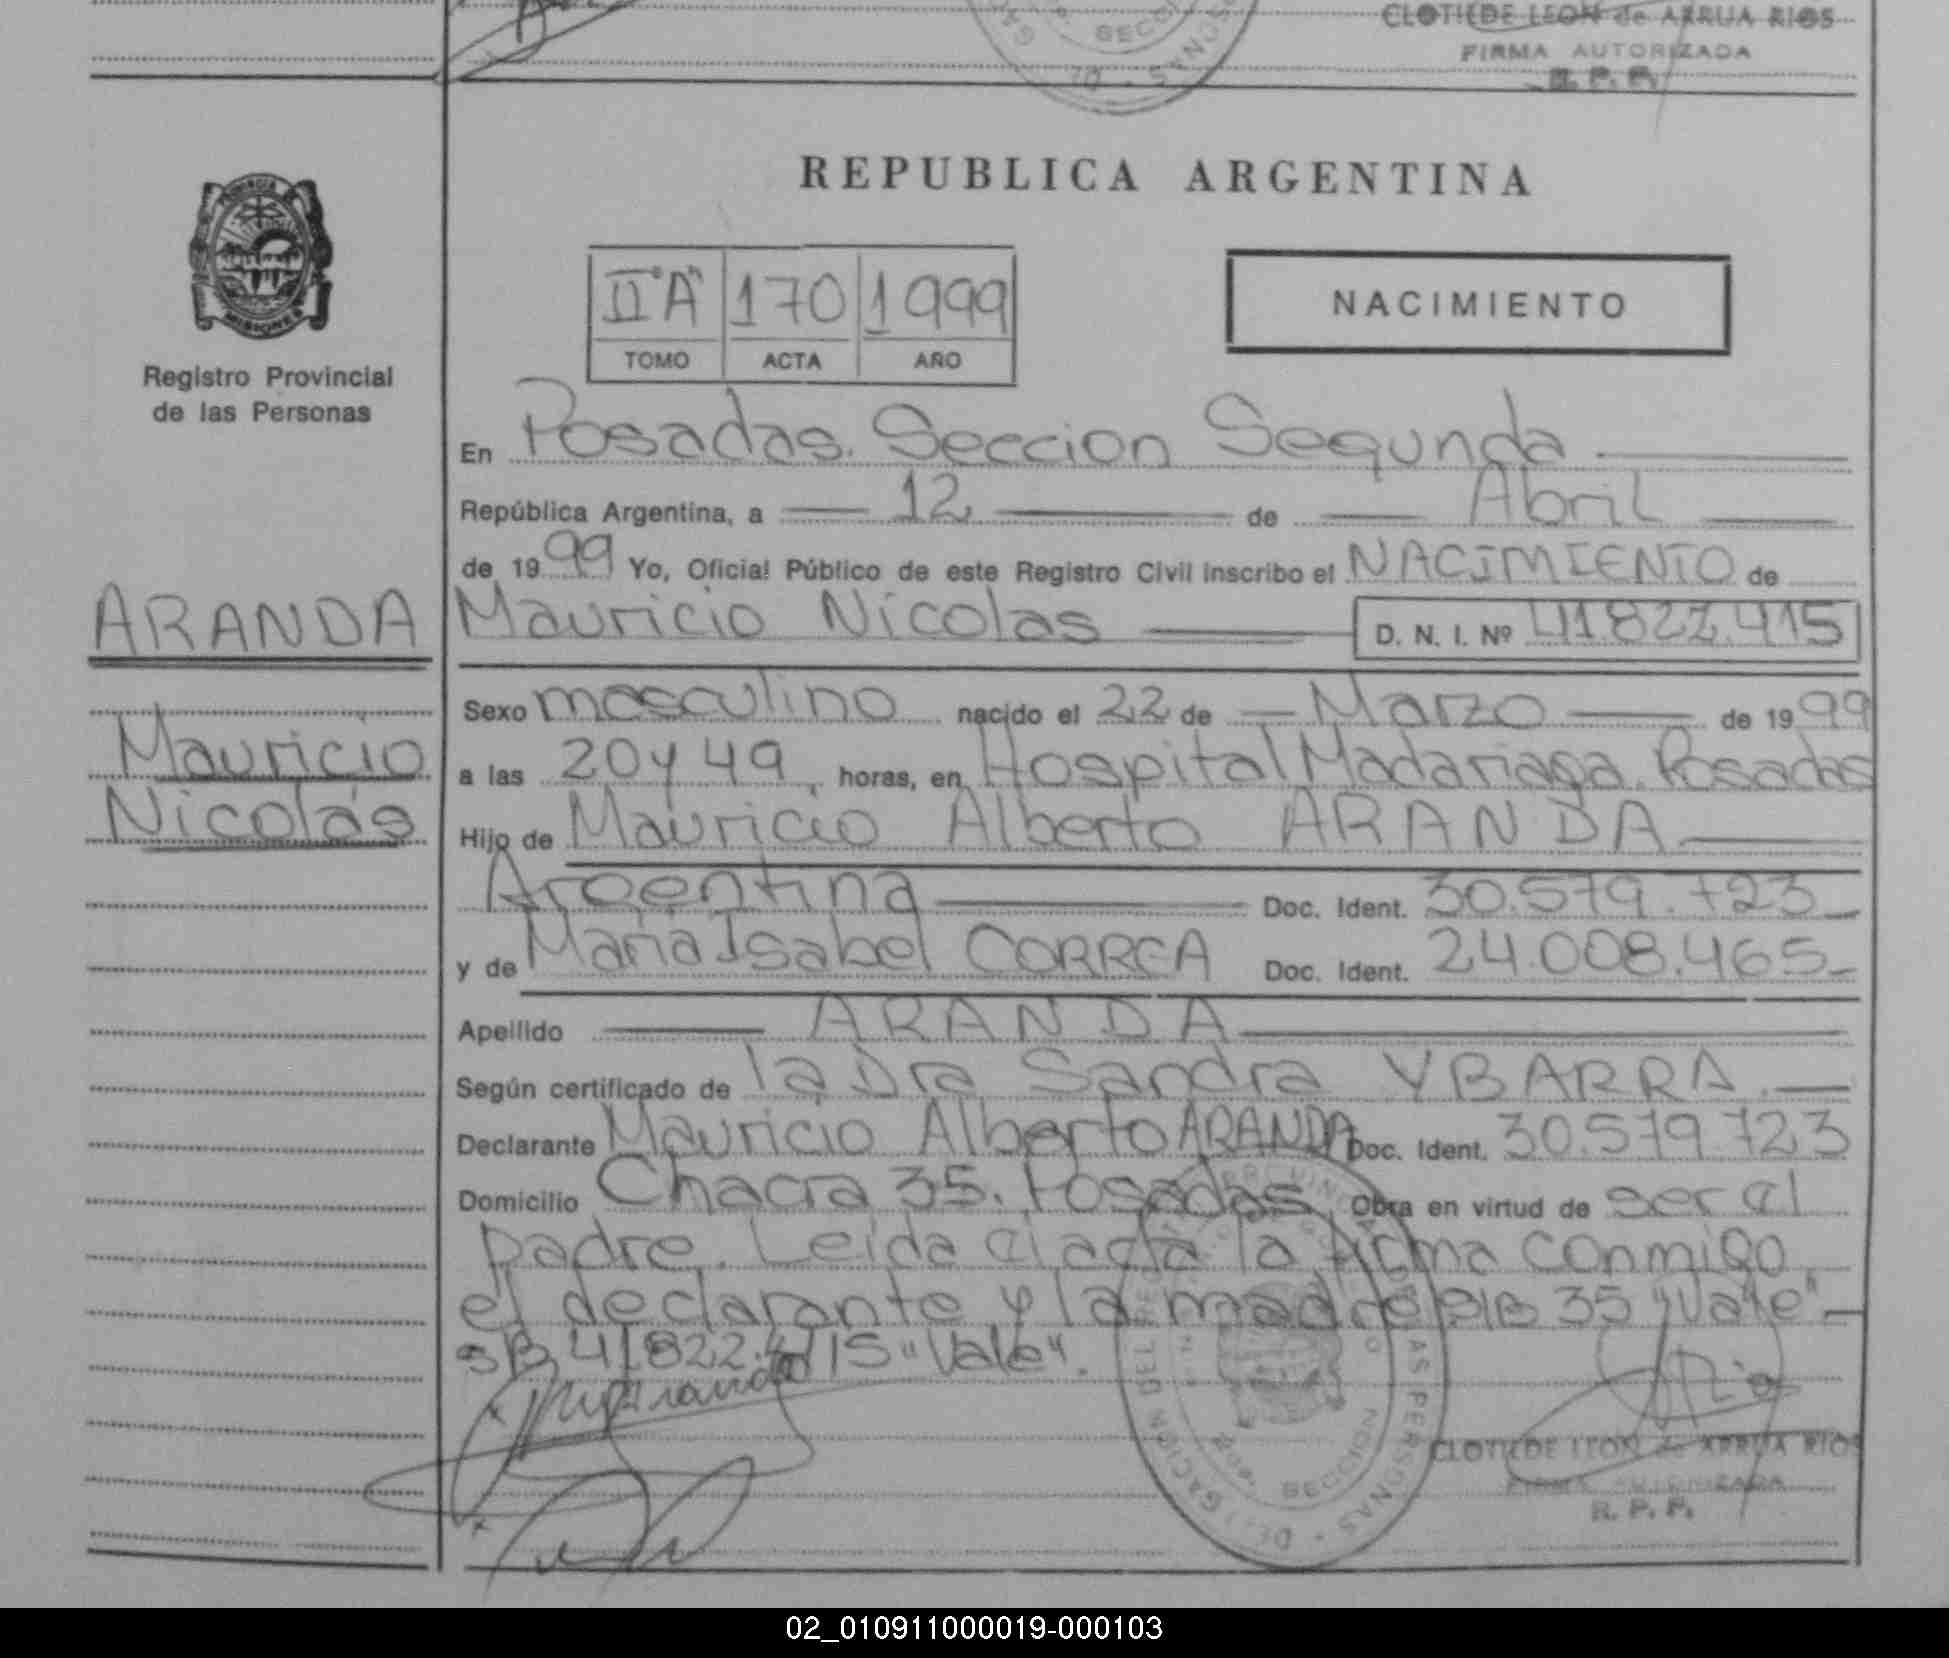 CLOTILDE LEON de ARRUA RIOS
FIRMA AUTORIZADA
R. P. P.
SECCION
REPUBLICA ARGENTINA
PROVINCIA
MISIONES
Registro Provincial
de las Personas
II "A" 170 1999
TOMO ACTA AÑO
NACIMIENTO
En Posadas. Seccion Segunda
República Argentina, a 12 de Abril
de 1999 Yo, Oficial Público de este Registro Civil inscribo el NACIMIENTO de
ARANDA
Mauricio Nicolas D. N. I. Nº 41.822.415
Sexo masculino nacido el 22 de Marzo de 1999
Mauricio
Nicolás
a las 20 y 49 horas, en Hospital Madariaga. Posadas
Hijo de Mauricio Alberto ARANDA
Argentina Doc. Ident. 30.579.723
y de Maria Isabel CORREA Doc. Ident. 24.008.465
Apellido ARANDA
Según certificado de la Dra Sandra YBARRA.
Declarante Mauricio Alberto ARANDA Doc. Ident. 30.579.723
Domicilio Chacra 35. Posadas Obra en virtud de ser el
padre. Leida el acta la firma conmigo
el declarante y la madre S/B 35 "Vale"
S/B 41822.415 "Vale".
SECCION
CLOTILDE LEON de ARRUA RIOS
FIRMA AUTORIZADA
R. P. P.
02_010911000019-000103